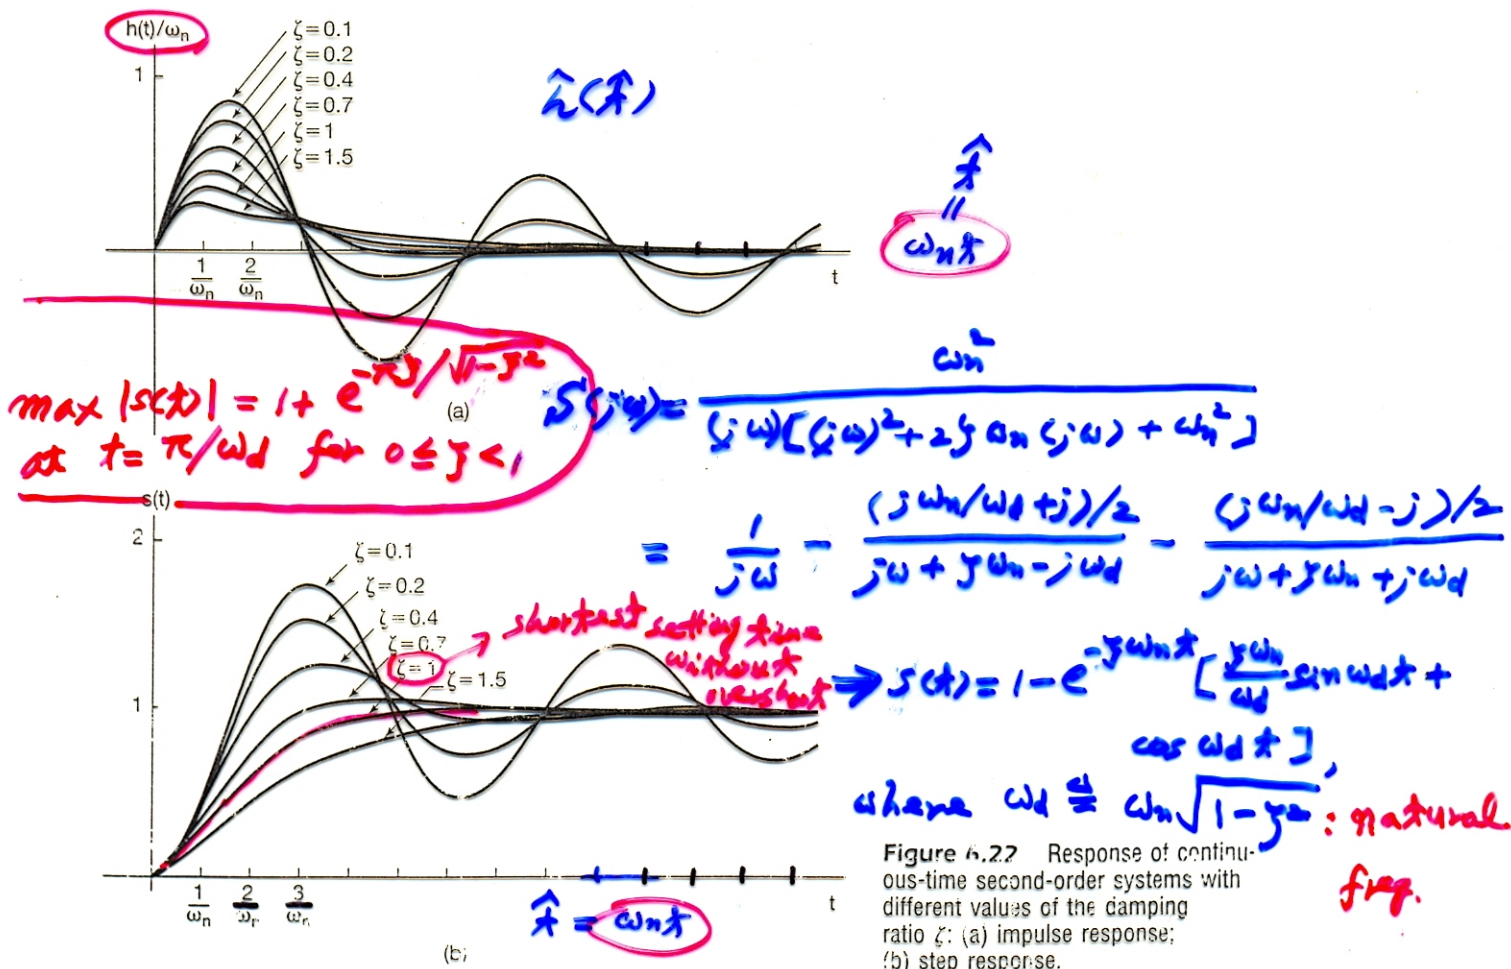 h(t)/ωn
ζ=0.1
ζ=0.2
ζ=0.4
ζ=0.7
ζ=1
ζ=1.5
1
ĥ(t̂)
t̂
=
ωnt
1/ωn 2/ωn
t
(a)
max |s(t)| = 1 + e^{-πζ/√(1-ζ²)}
at t = π/ωd for 0 ≤ ζ < 1
S(jω) = ωn² / (jω)[(jω)² + 2ζωn(jω) + ωn²]
= 1/jω - (jωn/ωd + j)/2 / (jω + ζωn - jωd) - (jωn/ωd - j)/2 / (jω + ζωn + jωd)
s(t)
2
ζ=0.1
ζ=0.2
ζ=0.4
ζ=0.7
ζ=1
ζ=1.5
1
shortest setting time
without
overshoot
⇒ s(t) = 1 - e^{-ζωnt} [ζωn/ωd sin ωdt +
cos ωdt],
where ωd ≜ ωn√(1-ζ²) : natural
freq.
1/ωn 2/ωn 3/ωn
t̂ = ωnt
t
(b)
Figure 6.22 Response of continu-
ous-time second-order systems with
different values of the damping
ratio ζ: (a) impulse response;
(b) step response.